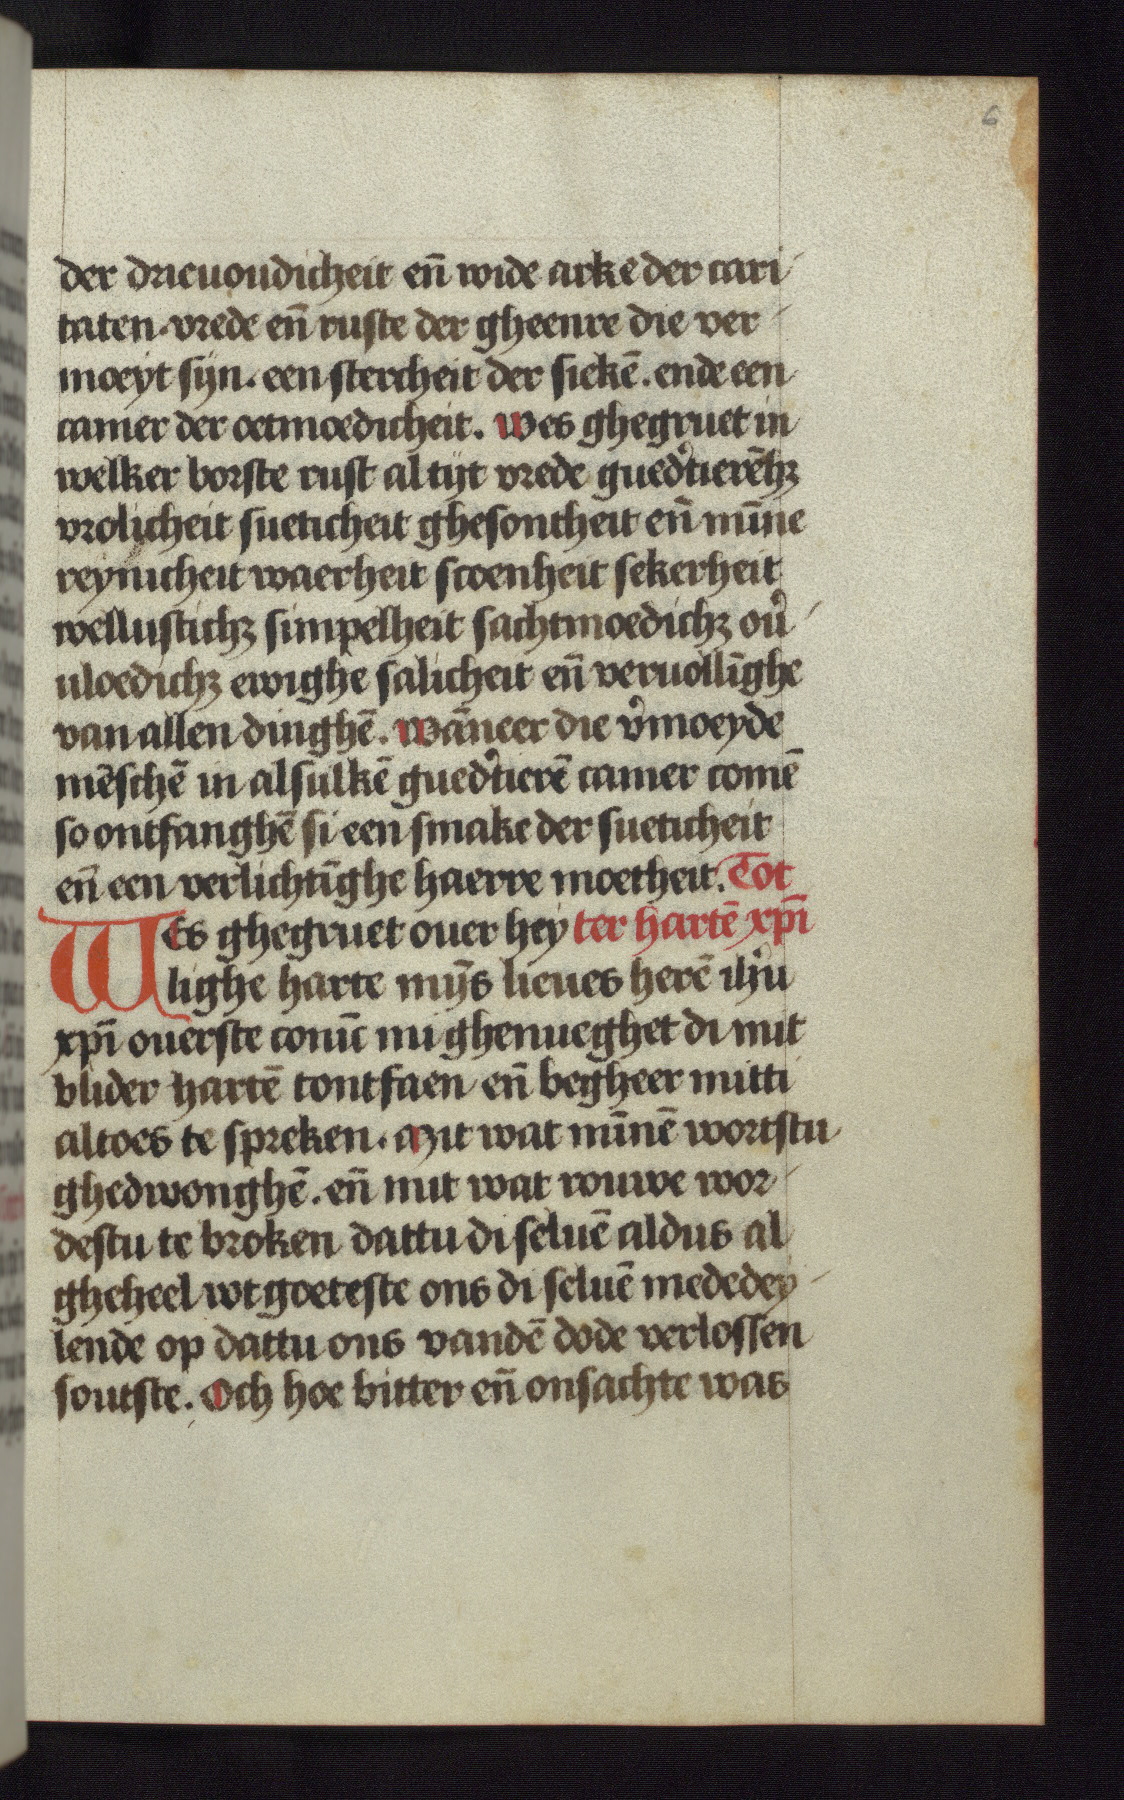 6
der drieuoudicheit en̄ wide arke der cari
taten. vrede en̄ ruste der gheenre die ver
moeyt sijn. een stercheit der siekē. ende een
camer der oetmoedicheit. Wes ghegruet in
welker borste rust altijt vrede guedtierēhꝫ
vrolicheit sueticheit ghesontheit en̄ mīne
reynicheit waerheit scoenheit sekerheit
wellustichꝫ simpelheit sachtmoedichꝫ ou̓
uloedichꝫ ewighe salicheit en̄ veruollīghe
van allen dinghē. Wāneer die v̓moeyde
mēschē in alsulkē guedtierē camer comē
so ontfanghē si een smake der sueticheit
en̄ een verlichtīghe haerre moetheit. Tot
Wes ghegruet ouer hey ter hartē xp̄i
lighe harte mijs̄ lieues herē ih̓u
xp̄i ouerste conīc mi ghenueghet di mit
blider hartē tontfaen en̄ begheer mitti
altoes te spreken. Mit wat mīnē wortstu
ghedwonghē. en̄ mit wat rouwe wor
destu te broken dattu di seluē aldus al
gheheel wtgoeteste ons di seluē mededey
lende op dattu ons vandē dode verlossen
soutste. Och hoe bitter en̄ onsachte was